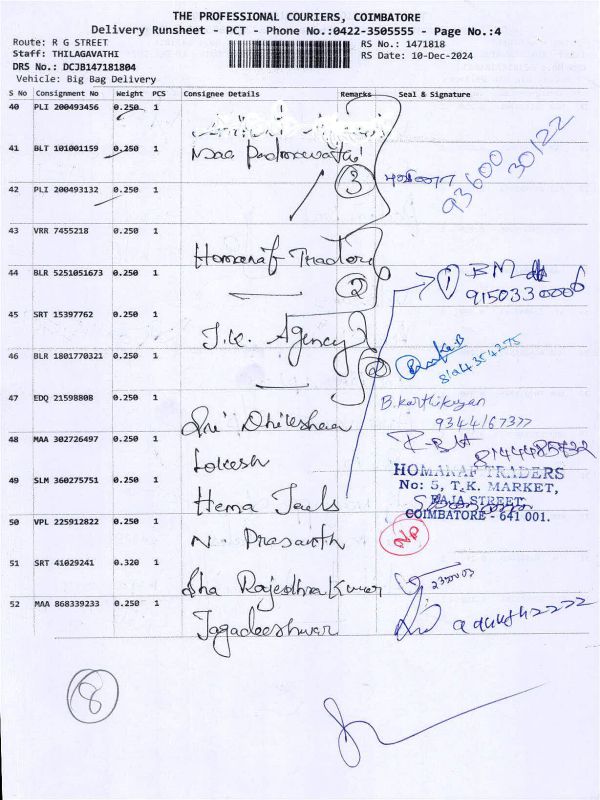 THE PROFESSIONAL COURIERS, COIMBATORE
Delivery Runsheet - PCT - Phone No.:0422-3505555 - Page No.:4
Route: R G STREET
Staff: THILAGAVATHI
DRS No.: DCJB147181804
Vehicle: Big Bag Delivery
RS No.: 1471818
RS Date: 10-Dec-2024
S No Consignment No Weight PCS Consignee Details Remarks Seal & Signature
40 PLI 200493456 0.250 1
41 BLT 101001159 0.250 1
3 93600 30122
42 PLI 200493132 0.250 1
43 VRR 7455218 0.250 1 Homanaf Traders
44 BLR 5251051673 0.250 1 2 1 BM
9150330006
45 SRT 15397762 0.250 1 J.K. Agency
46 BLR 1801770321 0.250 1 2
47 EDQ 21598808 0.250 1 B.karthikeyan
9344167377
48 MAA 302726497 0.250 1 Lokesh
HOMANAF TRADERS
No: 5, T.K. MARKET,
RAJA STREET,
COIMBATORE - 641 001.
49 SLM 360275751 0.250 1 Hema Jewls
50 VPL 225912822 0.250 1 N. Prasanth
51 SRT 41029241 0.320 1 Sha Rajendhra Kumar
52 MAA 868339233 0.250 1 Jagadeeshwar
8